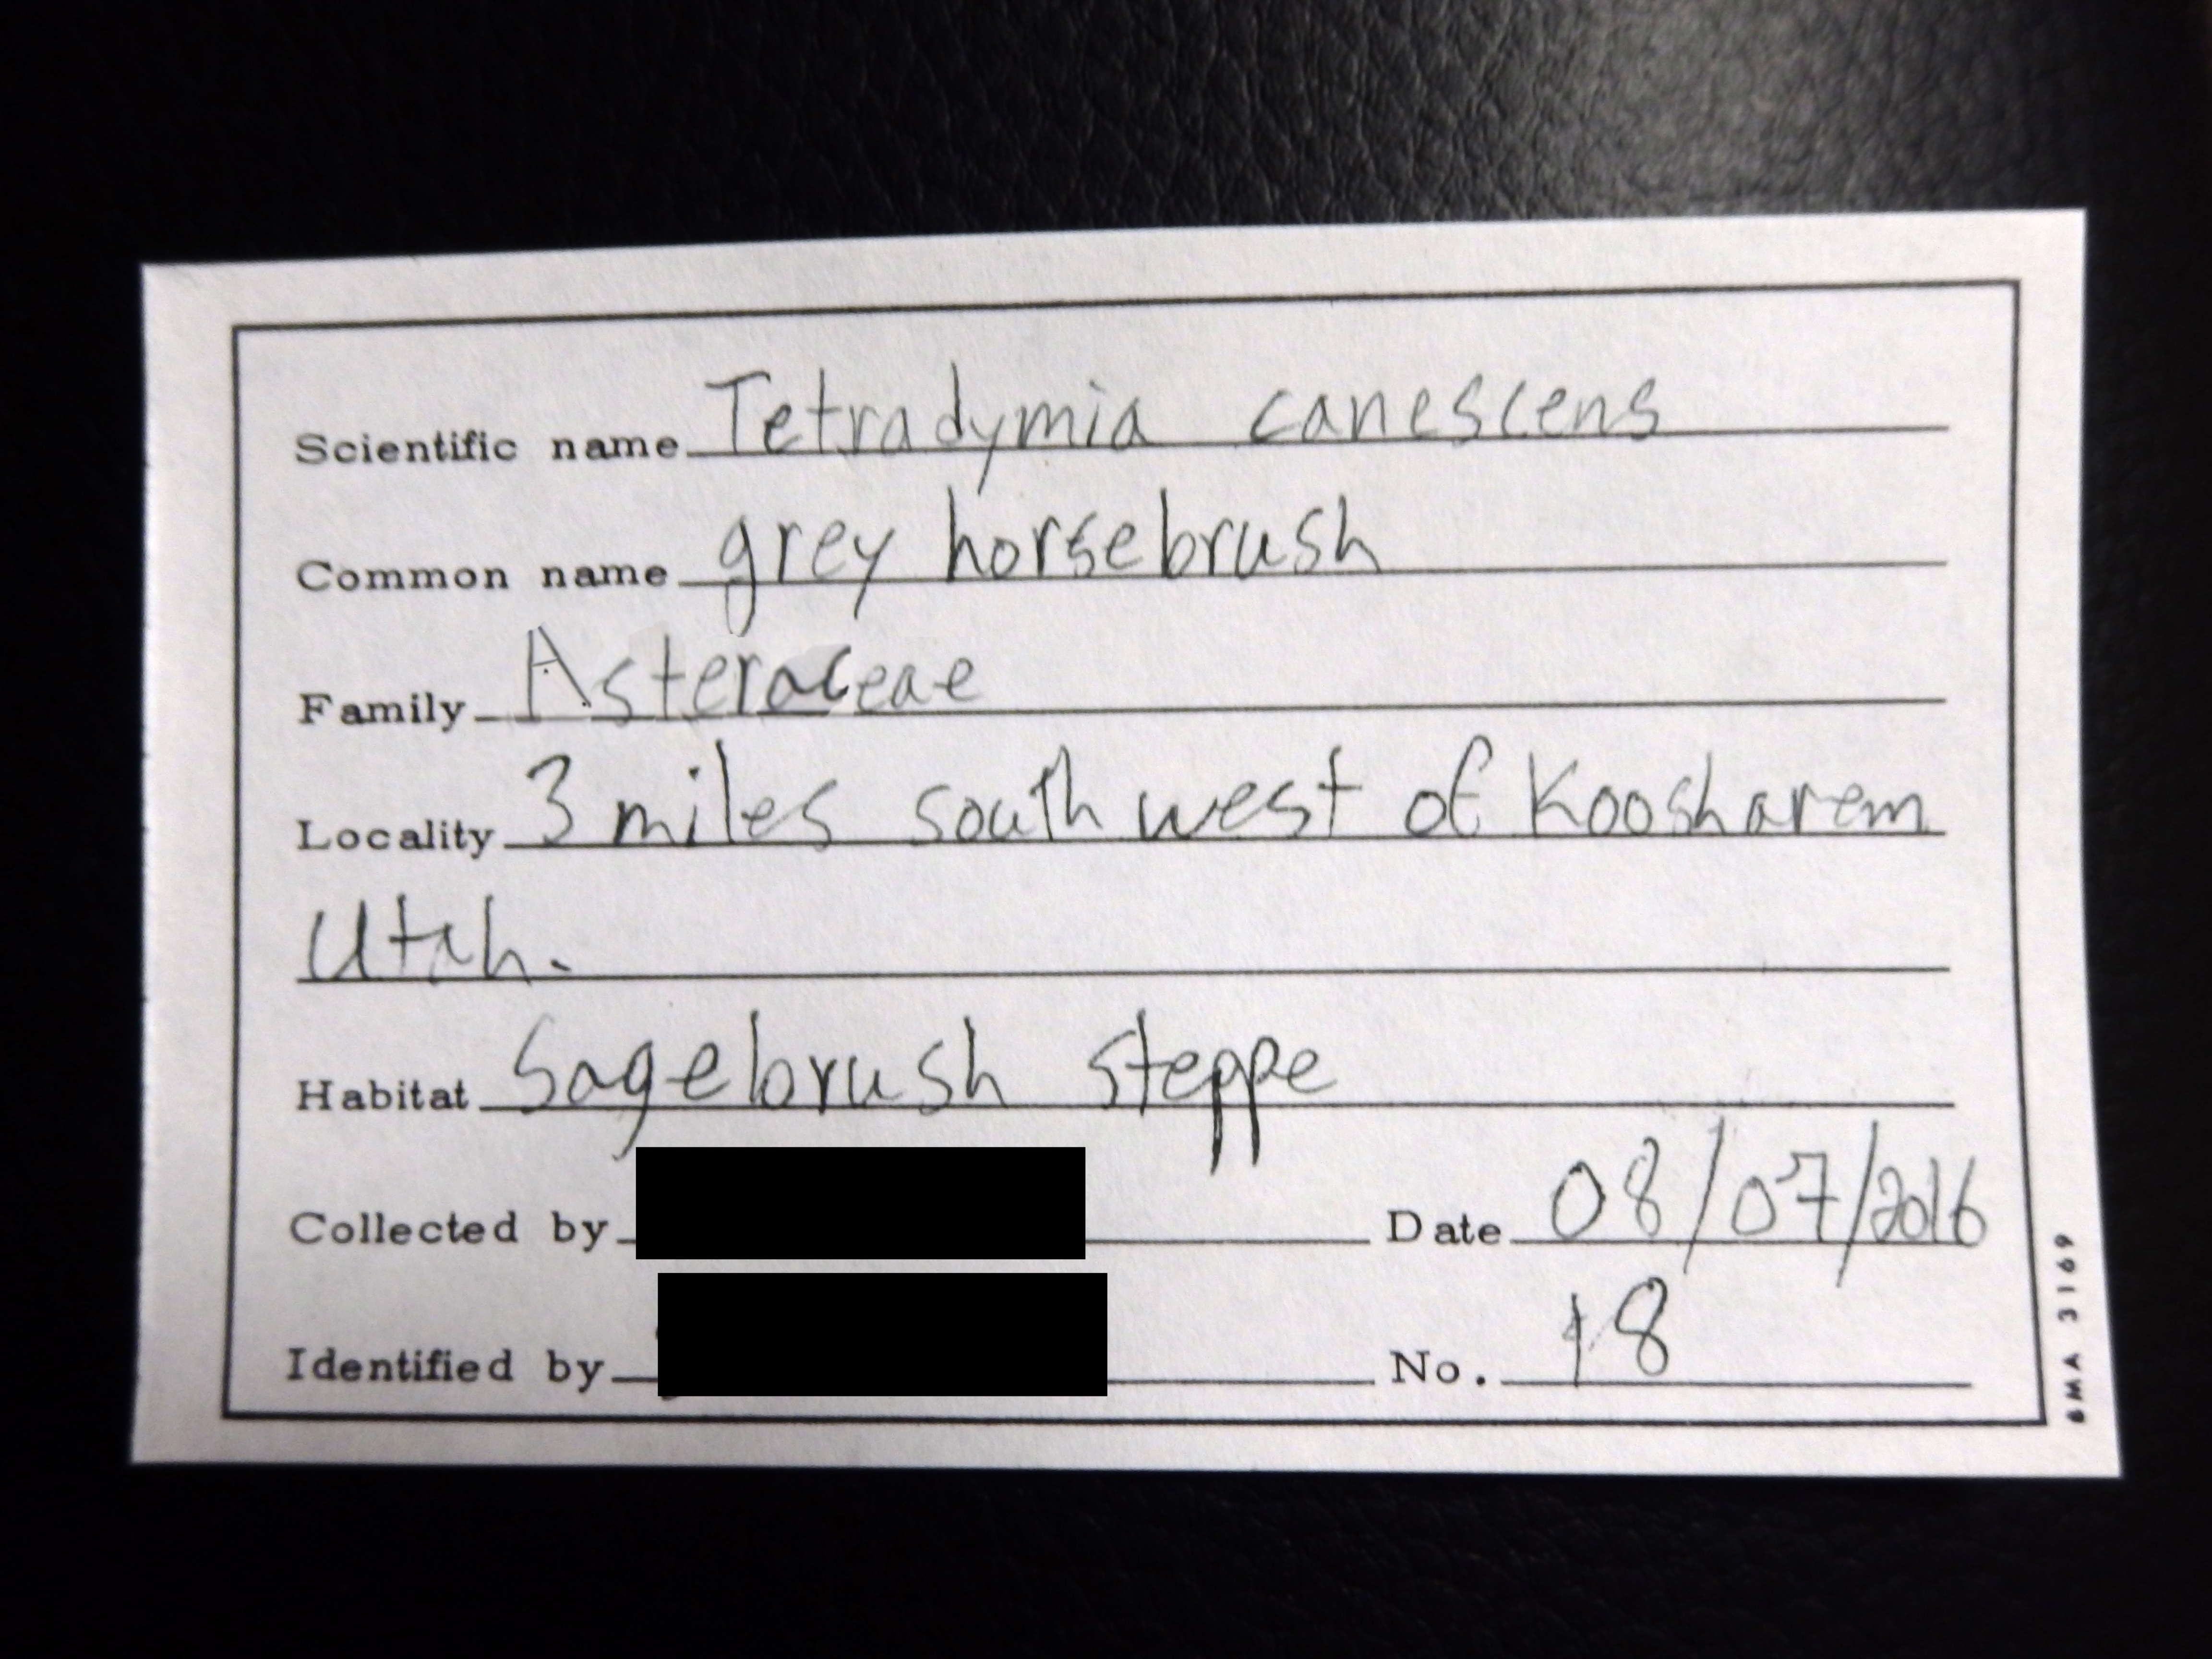 Scientific name Tetradymia canescens
Common name grey horsebrush
Family Asteraceae
Locality 3 miles southwest of Koosharem
Utah.
Habitat Sagebrush steppe
Collected by Date 08/07/2016
Identified by No. 18
BMA 3169